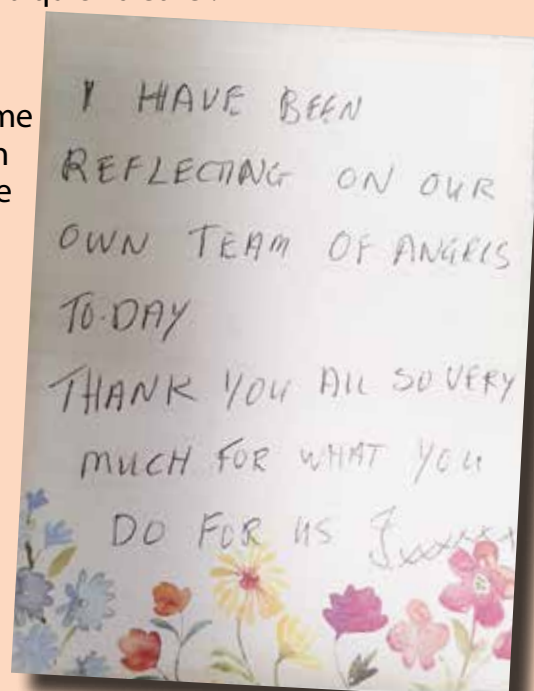 me
I HAVE BEEN
REFLECTING ON OUR
OWN TEAM OF ANGELS
TO-DAY
THANK YOU ALL SO VERY
MUCH FOR WHAT YOU
DO FOR US Jxxxxx